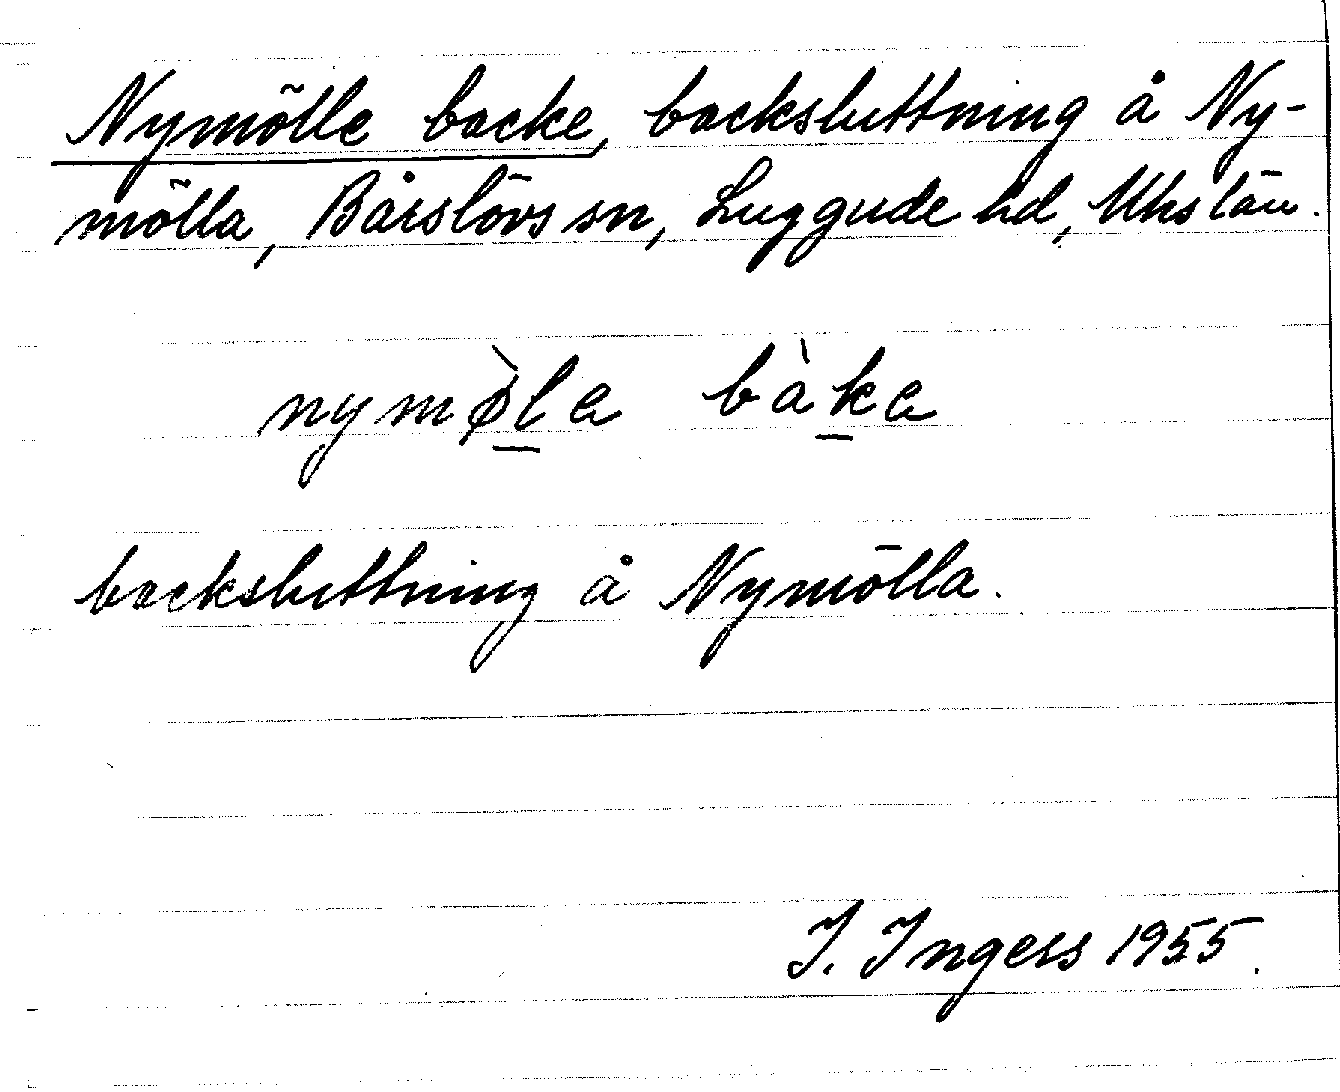 Nymölle backe, backsluttning å Ny-
mölla, Bårslövs sn, Luggude hd, Mhs län.
nymø̀la bàka
backsluttning å Nymölla.
I. Ingers 1955.